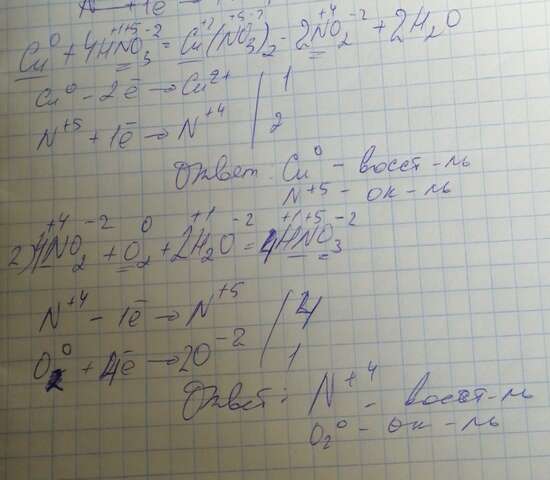 N + 1e →
Cu⁰ + 4H⁺¹N⁺⁵O₃⁻² = Cu⁺²(N⁺⁵O₃⁻²)₂ - 2N⁺⁴O₂⁻² + 2H₂O
Cu⁰ - 2e̅ → Cu²⁺ | 1
N⁺⁵ + 1e̅ → N⁺⁴ | 2
Ответ: Cu⁰ - восст-ль
N⁺⁵ - ок-ль
2) 4N⁺⁴O₂⁻² + O₂⁰ + 2H₂⁺¹O⁻² = 4H⁺¹N⁺⁵O₃⁻²
N⁺⁴ - 1e̅ → N⁺⁵ | 4
O₂⁰ + 4e̅ → 2O⁻² | 1
Ответ: N⁺⁴ - восст-ль
O₂⁰ - ок-ль